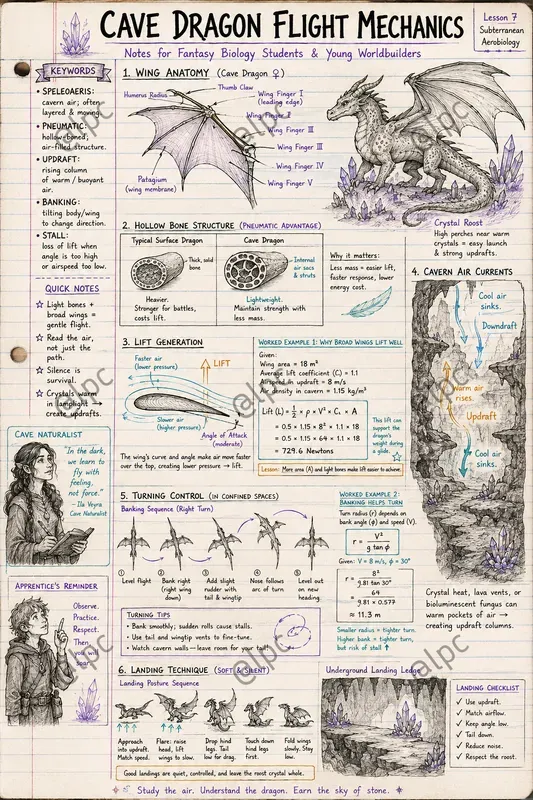 CAVE DRAGON FLIGHT MECHANICS
Notes for Fantasy Biology Students & Young Worldbuilders
Lesson 7
Subterranean
Aerobiology
KEYWORDS
• SPELEOAERIS:
cavern air; often
layered & moving.
• PNEUMATIC:
hollow-boned,
air-filled structure.
• UPDRAFT:
rising column
of warm / buoyant
air.
• BANKING:
tilting body/wing
to change direction.
• STALL:
loss of lift when
angle is too high
or airspeed too low.
QUICK NOTES
☆ Light bones +
broad wings =
gentle flight.
☆ Read the air,
not just the
path.
☆ Silence is
survival.
☆ Crystals warm
in lamplight →
create updrafts.
CAVE NATURALIST
"In the dark,
we learn to
fly with
feeling,
not force."
- Ila Veyra
Cave Naturalist
APPRENTICE'S REMINDER
Observe.
Practice.
Respect.
Then
you will
soar.
1. WING ANATOMY (Cave Dragon ♀)
Humerus Radius
Thumb Claw
Wing Finger I
(leading edge)
Wing Finger I
Wing Finger III
Wing Finger III
Wing Finger IV
Wing Finger V
Patagium
(wing membrane)
Crystal Roost
High perches near warm
crystals = easy launch
& strong updrafts.
2. HOLLOW BONE STRUCTURE (PNEUMATIC ADVANTAGE)
Typical Surface Dragon
Thick, solid
bone
Heavier.
Stronger for battles,
costs lift.
Cave Dragon
Internal
air sacs
& struts
Lightweight.
Maintain strength with
less mass.
Why it matters:
Less mass = easier lift,
faster response, lower
energy cost.
3. LIFT GENERATION
Faster air
(lower pressure)
LIFT
Slower air
(higher pressure)
Angle of Attack
(moderate)
The wing's curve and angle make air move faster
over the top, creating lower pressure → lift.
WORKED EXAMPLE 1: WHY BROAD WINGS LIFT WELL
Given:
Wing area = 18 m²
Average lift coefficient (Cₗ) = 1.1
Airspeed in updraft = 8 m/s
Air density in cavern = 1.15 kg/m³
Lift (L) = ½ × ρ × V² × Cₗ × A
= 0.5 × 1.15 × 8² × 1.1 × 18
= 0.5 × 1.15 × 64 × 1.1 × 18
= 729.6 Newtons
This lift
can support
the dragon's
weight during
a glide.
Lesson: More area (A) and light bones make lift easier to achieve.
4. CAVERN AIR CURRENTS
Cool air
sinks.
Downdraft
Warm air
rises.
Updraft
Cool air
sinks.
Crystal heat, lava vents, or
bioluminescent fungus can
warm pockets of air →
creating updraft columns.
5. TURNING CONTROL (IN CONFINED SPACES)
Banking Sequence (Right Turn)
① Level flight
② Bank right
(right wing
down)
③ Add slight
rudder with
tail & wingtip
④ Nose follows
arc of turn
⑤ Level out
on new
heading.
TURNING TIPS
• Bank smoothly; sudden rolls cause stalls.
• Use tail and wingtip vents to fine-tune.
• Watch cavern walls—leave room for your tail!
WORKED EXAMPLE 2:
BANKING HELPS TURN
Turn radius (r) depends on
bank angle (ϕ) and speed (V).
r = V² / g tan ϕ
Given: V = 8 m/s, ϕ = 30°
r = 8² / 9.81 tan 30°
= 64 / 9.81 × 0.577
≈ 11.3 m
Smaller radius = tighter turn.
Higher bank = tighter turn,
but risk of stall ↑
6. LANDING TECHNIQUE (SOFT & SILENT)
Landing Posture Sequence
Approach
into updraft.
Match speed.
Flare: raise
head, lift
wings to slow.
Drop hind
legs. Tail
low for drag.
Touch down
hind legs
first.
Fold wings
slowly. Stay
low.
Good landings are quiet, controlled, and leave the roost crystal whole.
Underground Landing Ledge
LANDING CHECKLIST
✓ Use updraft.
✓ Match airflow.
✓ Keep angle low.
✓ Tail down.
✓ Reduce noise.
✓ Respect the roost.
Study the air. Understand the dragon. Earn the sky of stone.
@alpc
@alpc
@alpc
@alpc
@alpc
@alpc
@alpc
@alpc